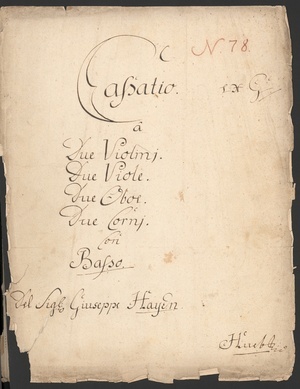 N. 78.
Cassatio. ex G.
à
Due Violinj.
Due Viole.
Due Oboe.
Due Cornj.
Con
Basso.
Del Sigl: Giuseppe Haydn